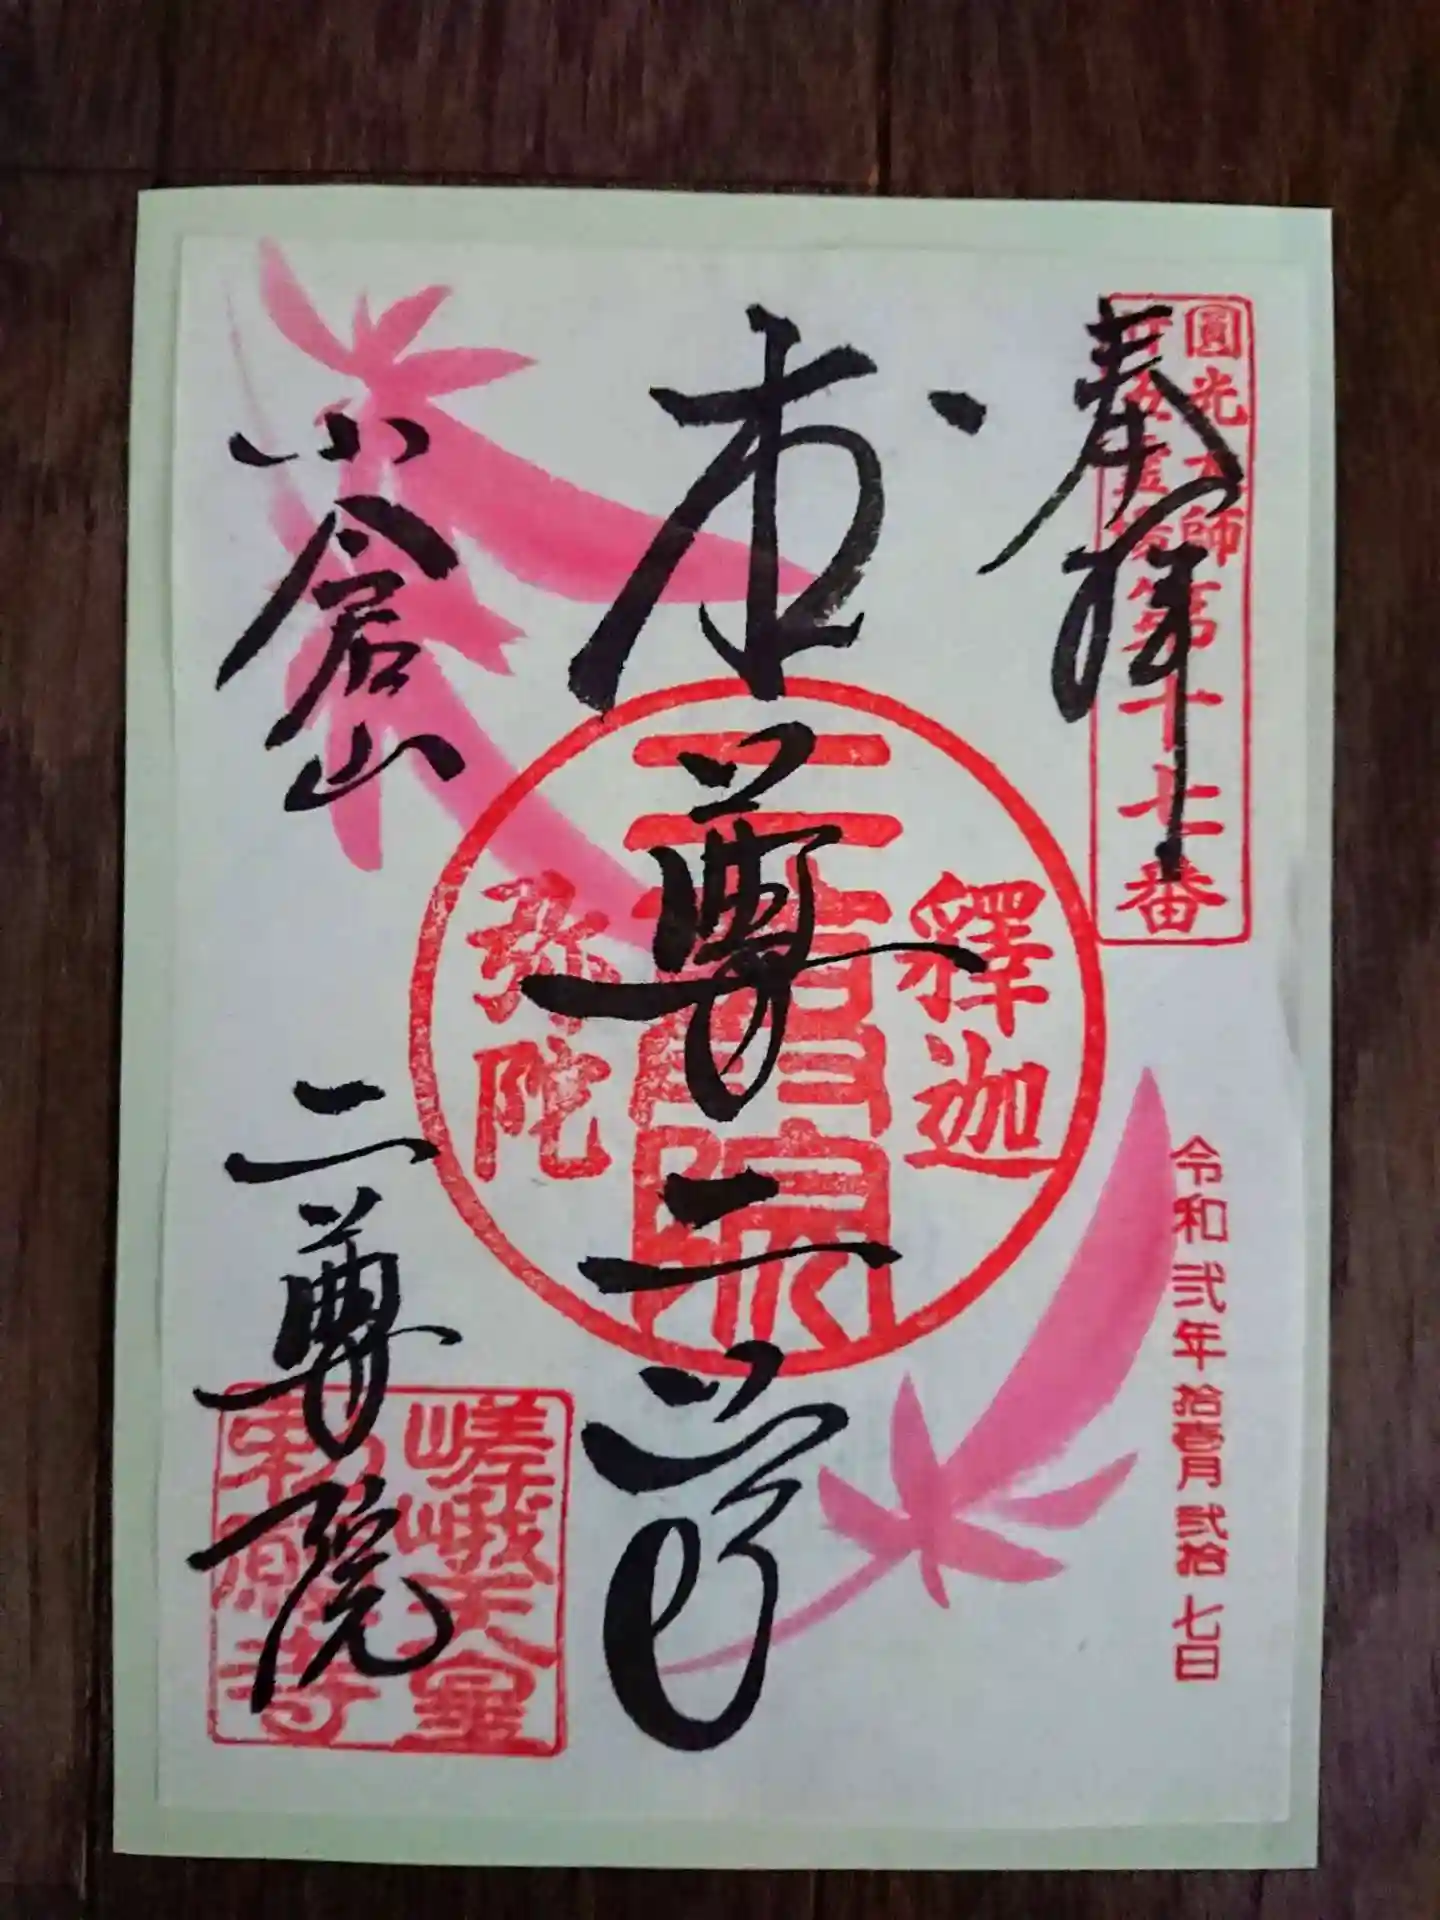 奉拝
圓光大師
廿五霊場第十七番
本尊二尊
釋迦
二尊院
弥陀
小倉山
二尊院
嵯峨天皇
勅願寺
令和弐年拾壱月弐拾七日